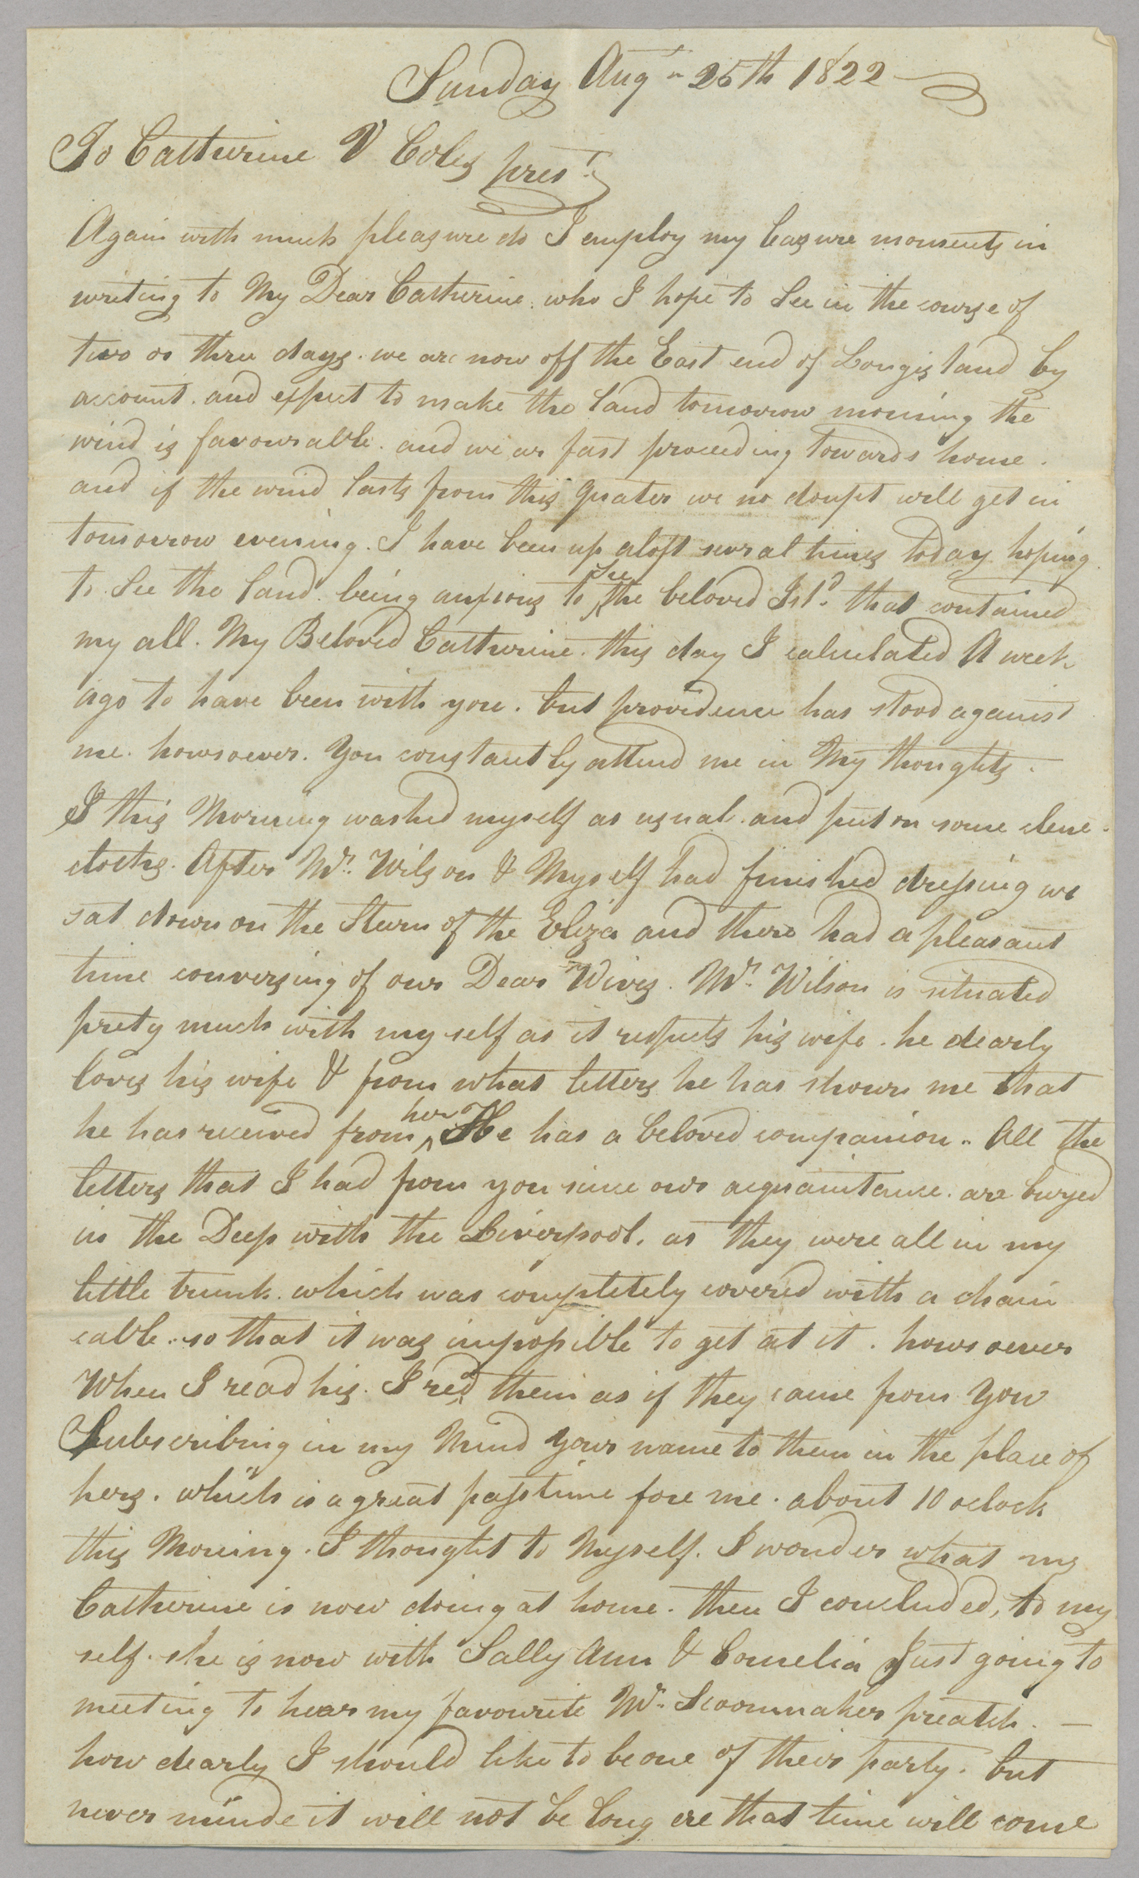 Sunday Augt 25th 1822
To Catherine V Coles prest
Again with much pleasure do I employ my leasure moments in
writing to My Dear Catherine. who I hope to See in the course of
two or three days. we are now off the East end of Longisland by
account. and expect to make the land tomorrow morning the
wind is favourable. and we ar fast proceeding towards home.
and if the wind lasts from this quater we no doupt will get in
tomorrow evening. I have been up aloft sevral times today hoping
to See the land. being anxious to see the beloved Isld. that contained
my all. My Beloved Catherine. this day I calculated A week
ago to have been with you. but providence has stood against
me. howsoever. You constantly attend me in My thoughts. —
I this Morning washed myself as usual. and put on some clene
cloths. After Mr. Wilson & Myself had finished dressing we
sat down on the Stern of the Eliza and there had a pleasant
time conversing of our Dear Wives. Mr. Wilson is situated
prety much with my self as it respects his wife. he dearly
loves his wife & from what letters he has shown me that
he has received from her He has a beloved companion. All the
letters that I had from you since our acquaintance. are buryed
in the Deep with the Liverpool. as they were all in my
little trunk. which was completely covered with a chain
cable. so that it was impossible to get at it. howsoever
When I read his. I red them as if they came from You
Subscribing in my Mind your name to them in the place of
hers. which is a great passtime fore me. about 10 oclock
this Morning. I thought to Myself. I wonder what my
Catherine is now doing at home. then I concluded, to my
self. she is now with Sally Ann & Cornelia Just going to
meeting to hear my favourite Mr. Scoonmaker preatch. —
how dearly I should like to be one of their party. but
never minde it will not be long ere that time will come